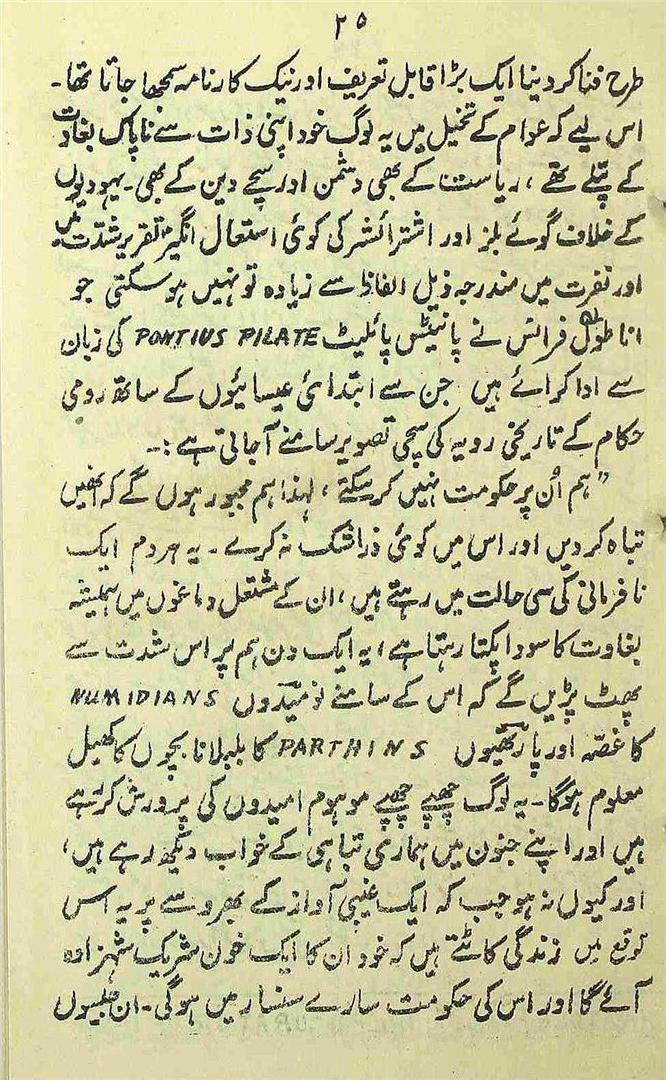 ۲۵
طرح فنا کر دینا ایک بڑا قابل تعریف اور نیک کارنامہ سمجھا جاتا تھا۔
اس لیے کہ عوام کے تخیل میں یہ لوگ خود اپنی ذات سے ناپاک بغاوت
کے پتلے تھے، ریاست کے بھی دشمن اور سچے دین کے بھی۔ یہودیوں
کے خلاف گوئے بلز اور اشترائشر کی کوئی استعال انگیز تقریر شدّت میں
اور نفرت میں مندرجہ ذیل الفاظ سے زیادہ تو نہیں ہو سکتی جو
اناطول فرانس نے پانیٹس پائلیٹ PONTIUS PILATE کی زبان
سے ادا کرائے ہیں جن سے ابتدائی عیسائیوں کے ساتھ رومی
حکام کے تاریخی رویہ کی سچی تصویر سامنے آجاتی ہے :۔
”ہم اُن پر حکومت نہیں کر سکتے، لہذا ہم مجبور ہوں گے کہ انھیں
تباہ کر دیں اور اس میں کوئی ذرا شک نہ کرے۔ یہ ہر دم ایک
نافرمانی کی سی حالت میں رہتے ہیں، ان کے مشتعل دماغوں میں ہمیشہ
بغاوت کا سودا پکتا رہتا ہے، یہ ایک دن ہم پر اس شدت سے
پھٹ پڑیں گے کہ اس کے سامنے نومیدوں NUMIDIANS
کا غصّہ اور پارتھیوں PARTHINS کا بلبلانا بچوں کا کھیل
معلوم ہوگا۔ یہ لوگ چھپے چھپے موہوم امیدوں کی پرورش کرتے
ہیں اور اپنے جنون میں ہماری تباہی کے خواب دیکھ رہے ہیں،
اور کیوں نہ ہو جب کہ ایک غیبی آواز کے بھروسے پر یہ اس
توقع میں زندگی کاٹتے ہیں کہ خود ان کا ایک خون شریک شہزادہ
آئے گا اور اس کی حکومت سارے سنسار میں ہوگی۔ ان